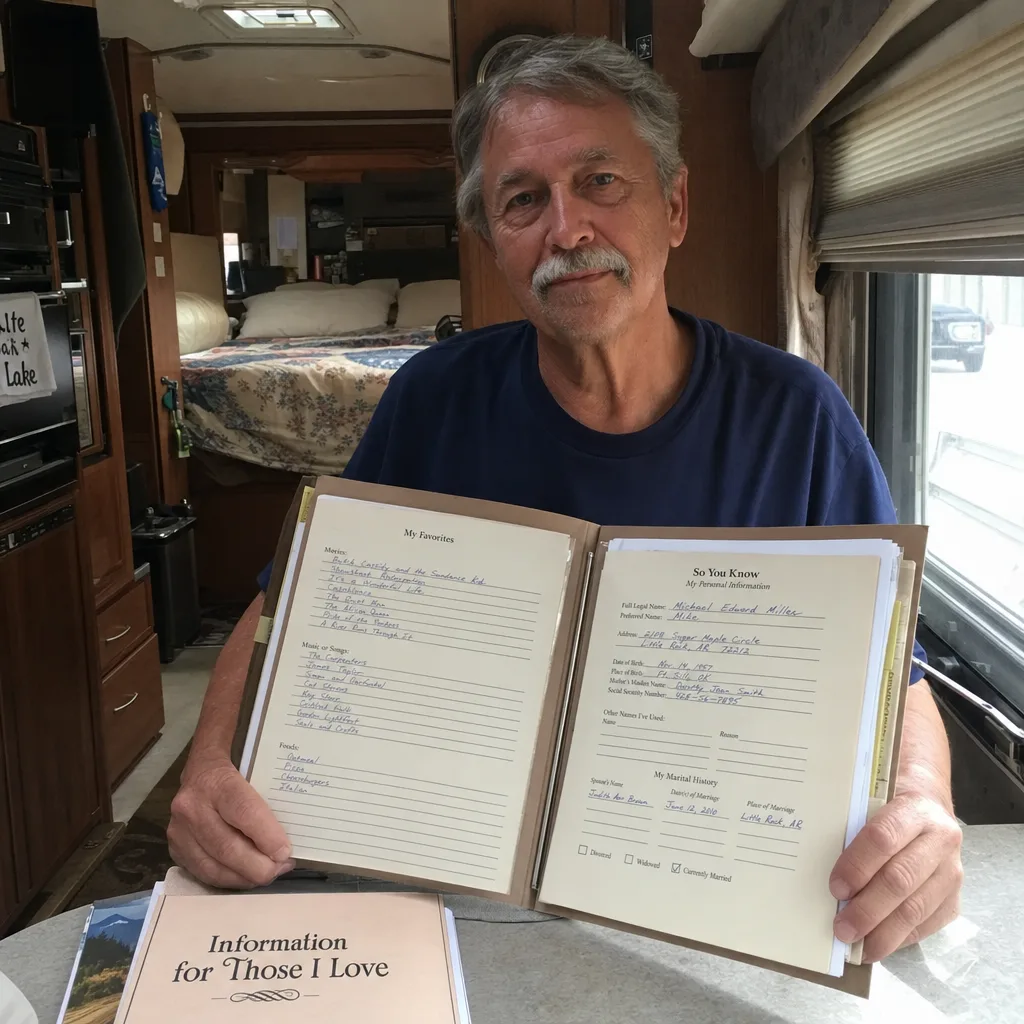 lte
ak *
Lake
My Favorites
Movies:
Butch Cassidy and the Sundance Kid
Shawshank Redemption
It's a Wonderful Life
Casablanca
The Quiet Man
The African Queen
Pride of the Yankees
A River Runs Through It
Music or Songs:
The Carpenters
James Taylor
Simon and Garfunkel
Cat Stevens
Kay Starr
Gordon Lightfoot
Seals and Crofts
Foods:
Oatmeal
Pizza
Cheeseburgers
Italian
So You Know
My Personal Information
Full Legal Name: Michael Edward Miller
Preferred Name: Mike
Address: Sugar Maple Circle
Little Rock, AR 72212
Date of Birth: Nov. 14, 1957
Place of Birth: Ft. Sill, OK
Mother's Maiden Name: Dorothy Jean Smith
Social Security Number: [number omitted for privacy]
Other Names I've Used:
Name Reason
My Marital History
Spouse's Name Date(s) of Marriage Place of Marriage
Judith Ann Brown June 12, 2010 Little Rock, AR
Divorced Widowed Currently Married
Information
for Those I Love